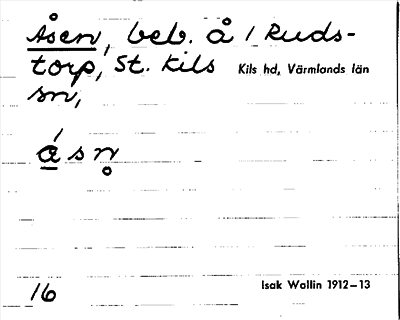 Åsen, beb. å / Ruds-
torp, St. Kils Kils hd, Värmlands län
sn,
ásn̥
16 Isak Wollin 1912–13